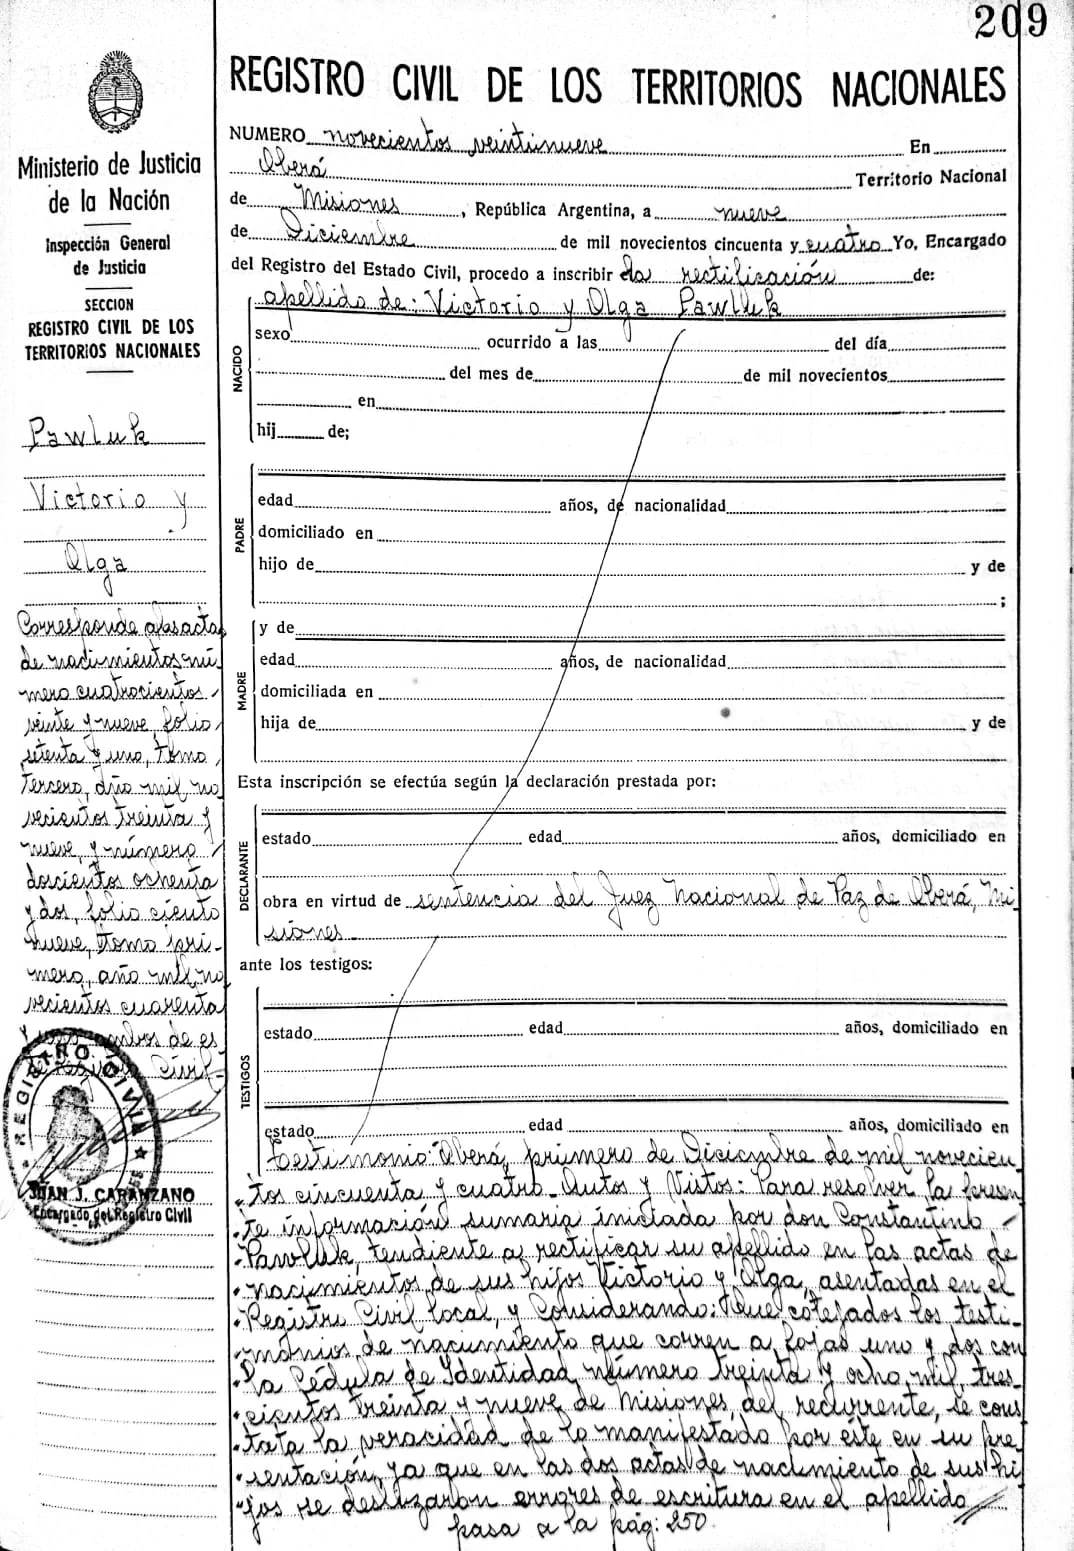 209
REGISTRO CIVIL DE LOS TERRITORIOS NACIONALES
Ministerio de Justicia
de la Nación
Inspección General
de Justicia
SECCION
REGISTRO CIVIL DE LOS
TERRITORIOS NACIONALES
Pawluk
Victorio y
Olga
Corresponde a las actas
de nacimientos nú
mero cuatrocientos
veinte y nueve, folio
setenta y uno, tomo
tercero, año mil no
vecientos treinta y
nueve, y número
doscientos ochenta
y dos, folio ciento
nueve, tomo pri-
mero, año mil no
vecientos cuarenta
y uno, ambos de es
Civil-
REGISTRO CIVIL
JUAN J. CARANZANO
Encargado del Registro Civil
NUMERO novecientos veintinueve En
Oberá Territorio Nacional
de Misiones, República Argentina, a nueve
de Diciembre de mil novecientos cincuenta y cuatro Yo, Encargado
del Registro del Estado Civil, procedo a inscribir la rectificación de:
apellido de: Victorio y Olga Pawlluk
NACIDO
sexo ocurrido a las del día
del mes de de mil novecientos
en
hij de;
PADRE
edad años, de nacionalidad
domiciliado en
hijo de y de
;
MADRE
y de
edad años, de nacionalidad
domiciliada en
hija de y de
Esta inscripción se efectúa según la declaración prestada por:
DECLARANTE
estado edad años, domiciliado en
obra en virtud de sentencia del Juez Nacional de Paz de Oberá, Mi-
siones
ante los testigos:
TESTIGOS
estado edad años, domiciliado en
estado edad años, domiciliado en
Testimonio: Oberá, primero de Diciembre de mil novecien
tos cincuenta y cuatro. Autos y Vistos: Para resolver la presen
te información sumaria iniciada por don Constantino
Pawluk, tendiente a rectificar su apellido en las actas de
nacimientos de sus hijos Victorio y Olga, asentadas en el
Registro Civil local, y Considerando: Que cotejados los testi-
monios de nacimiento que corren a fojas uno y dos con
la Cédula de Identidad número treinta y ocho mil, tres-
cientos treinta y nueve de Misiones, del recurrente, se cons
tata la veracidad de lo manifestado por éste en su pre
sentación, ya que en las dos actas de nacimiento de sus hi
jos se deslizaron errores de escritura en el apellido
pasa a la pág: 250.